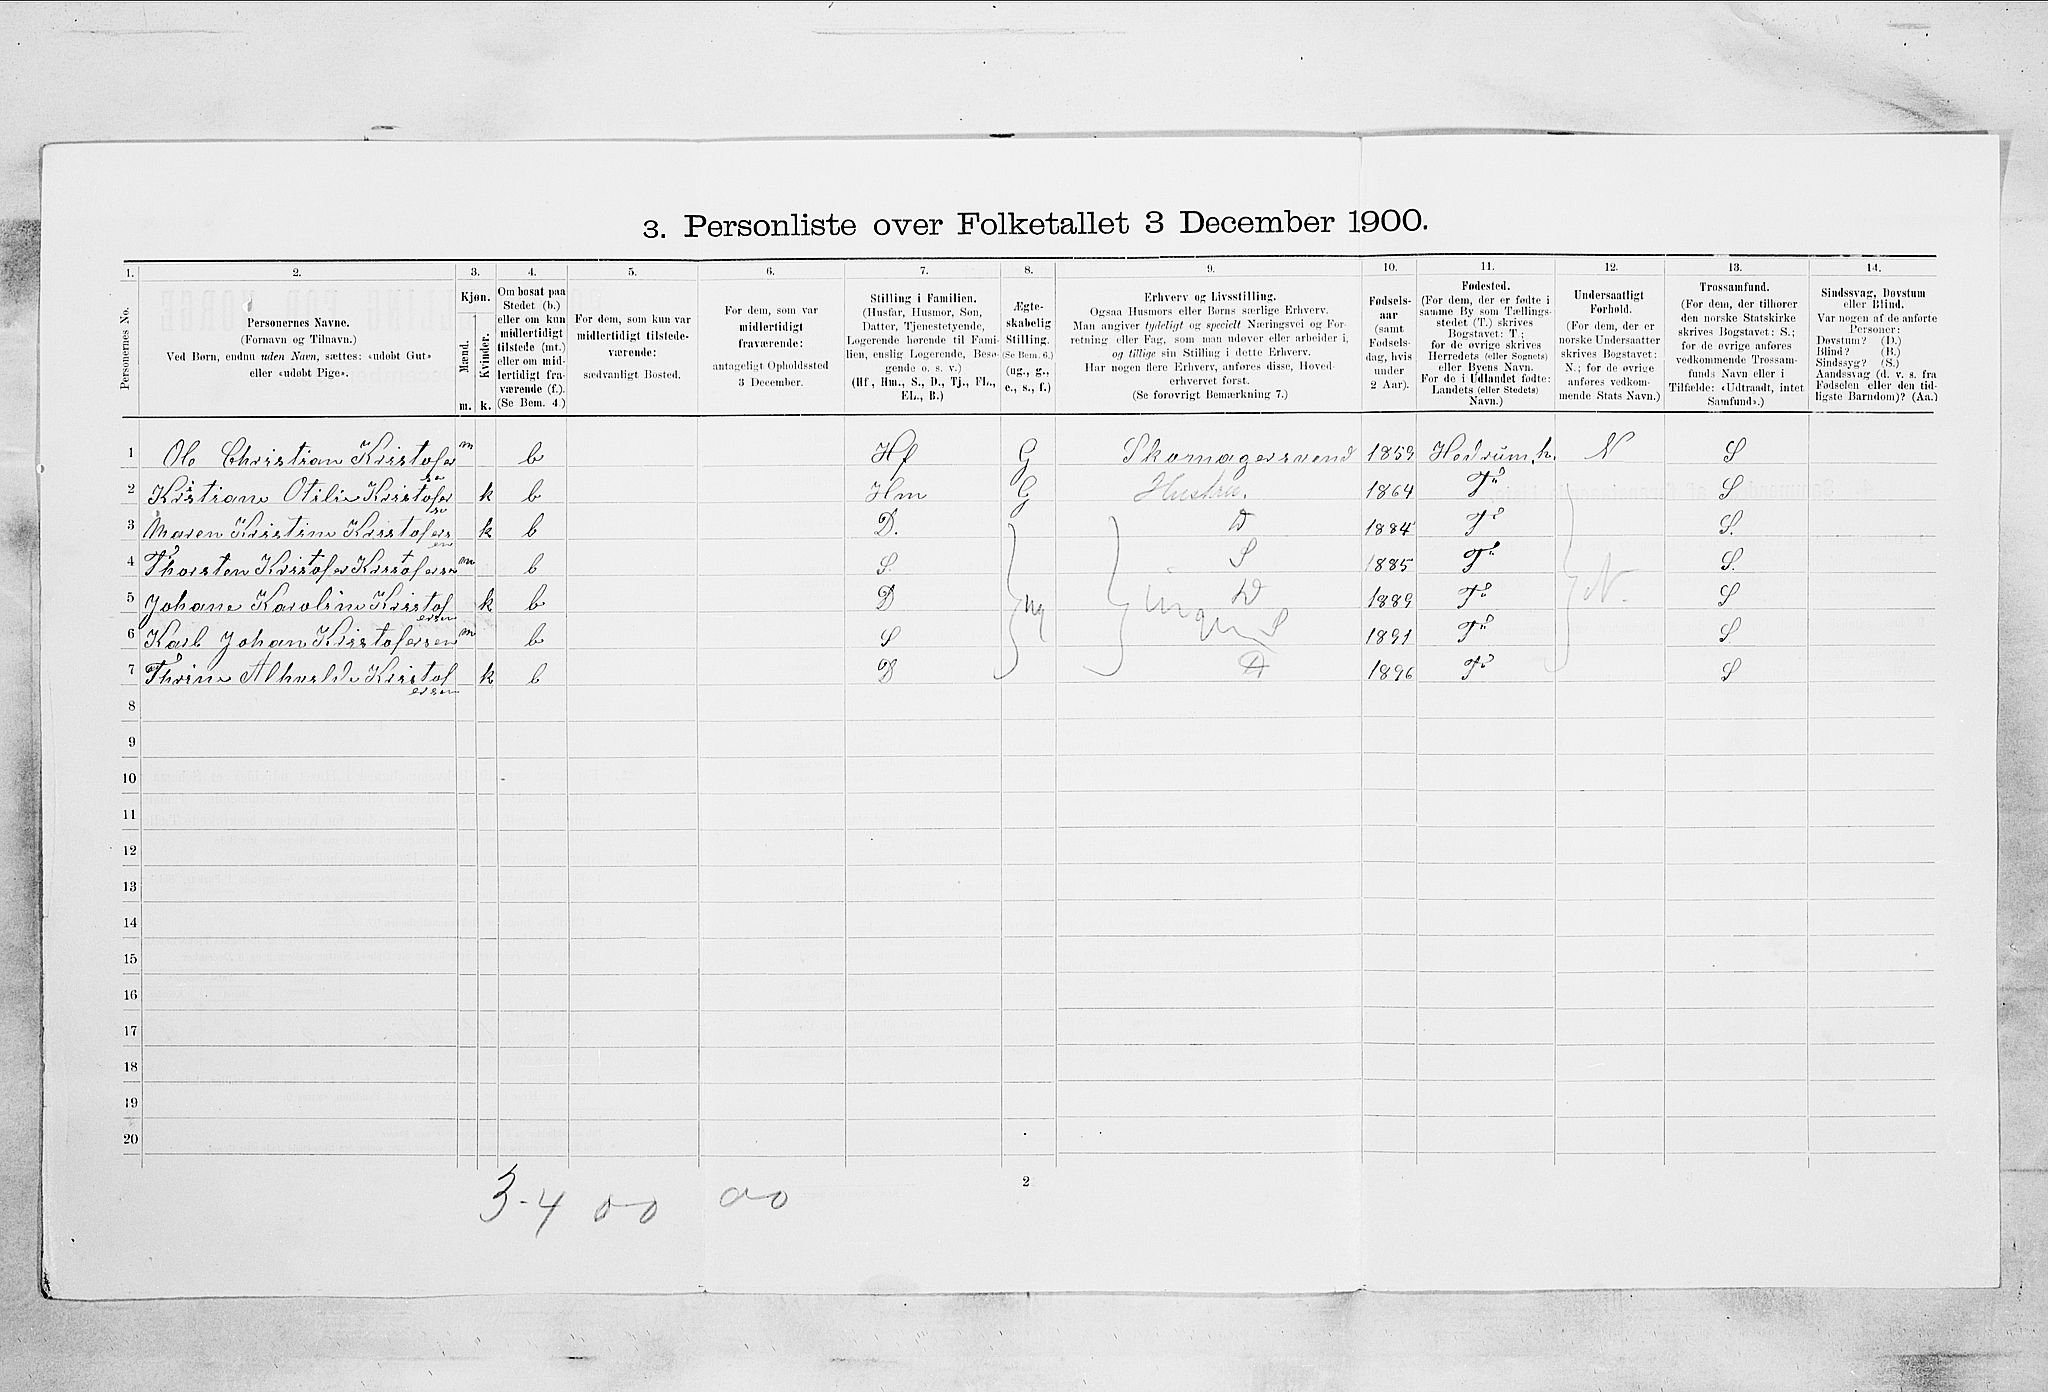 3. Personliste over Folketallet 3 December 1900.
1. 2. 3. 4. 5. 6. 7. 8. 9. 10. 11. 12. 13. 14.
Personernes No.
Personernes Navne.
(Fornavn og Tilnavn.)
Ved Børn, endnu uden Navn, sættes: «udøbt Gut»
eller «udøbt Pige».
Kjøn.
Mænd.
Kvinder.
m. k.
Om bosat paa
Stedet (b.)
eller om kun
midlertidigt
tilstede (mt.)
eller om mid-
lertidigt fra-
værende (f.).
(Se Bem. 4.)
For dem, som kun var
midlertidigt tilstede-
værende:
sædvanligt Bosted.
For dem, som var
midlertidigt
fraværende:
antageligt Opholdssted
3 December.
Stilling i Familien.
(Husfar, Husmor, Søn,
Datter, Tjenestetyende,
Logerende hørende til Fami-
lien, enslig Logerende, Besø-
gende o. s. v.)
(Hf., Hm., S., D., Tj., FL.,
EL., B.)
Ægte-
skabelig
Stilling.
(Se Bem. 6.)
(ug., g.,
e., s., f.)
Erhverv og Livsstilling.
Ogsaa Husmors eller Børns særlige Erhverv.
Man angiver tydeligt og specielt Næringsvei og For-
retning eller Fag, som man udøver eller arbeider i,
og tillige sin Stilling i dette Erhverv.
Har nogen flere Erhverv, anføres disse, Hoved-
erhvervet først.
(Se forøvrigt Bemærkning 7.)
Fødsels-
aar
(samt
Fødsels-
dag, hvis
under
2 Aar).
Fødested.
(For dem, der er fødte i
samme By som Tællings-
stedet (T.) skrives
Bogstavet: T.;
for de øvrige skrives
Herredets (eller Sognets)
eller Byens Navn.
For de i Udlandet fødte:
Landets (eller Stedets)
Navn.)
Undersaatligt
Forhold.
(For dem, der er
norske Undersaatter
skrives Bogstavet:
N.; for de øvrige
anføres vedkom-
mende Stats Navn.)
Trossamfund.
(For dem, der tilhører
den norske Statskirke
skrives Bogstavet: S.;
for de øvrige anføres
vedkommende Trossam-
funds Navn eller i
Tilfælde: «Udtraadt, intet
Samfund».)
Sindssvag, Døvstum
eller Blind.
Var nogen af de anførte
Personer:
Døvstum? (D.)
Blind? (B.)
Sindssyg? (S.)
Aandssvag (d. v. s. fra
Fødselen eller den tid-
ligste Barndom)? (Aa.)
1 Ole Christian Kristofer m b Hf G Skomagersvend 1859 Hedrum h. N S
2 Kristiane Otilie Kristofer k b Hm G Hustru. 1864 T S
3 Maren Kristine Kristofers en k b D. D 1884 T S.
4 Thorsten Kristofer Kristofersen m b S. S 1885 T S.
5 Johane Karoline Kristof ersen k b D ug D 1889 T N. S
6 Karl Johan Kristofersen m b S S 1891 T S
7 Kristof ersen k b D D 1896 T S
8
9
10
11
12
13
14
15
16
17
18
19
20
2
3-4 00 00